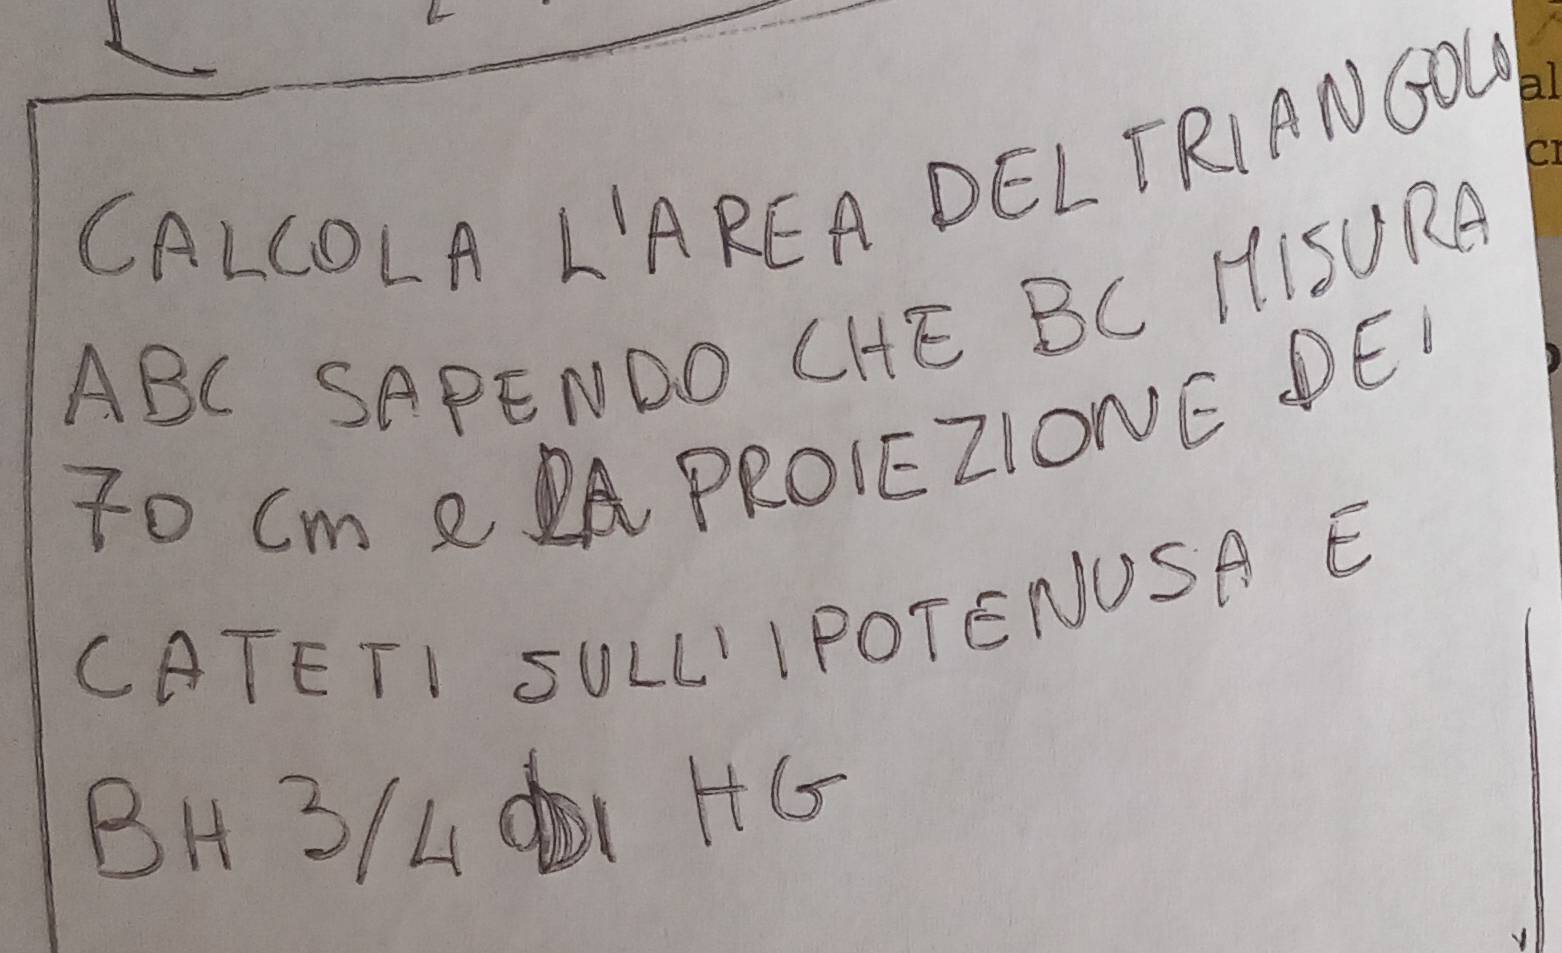 CALCOLA L'AREA DEL TRIANGOLO
ABC SAPENDO CHE BC MISURA
70 cm e LA PROIEZIONE DEI
CATETI SULL'IPOTENUSA E
BH 3/4 DI HG
al
cr